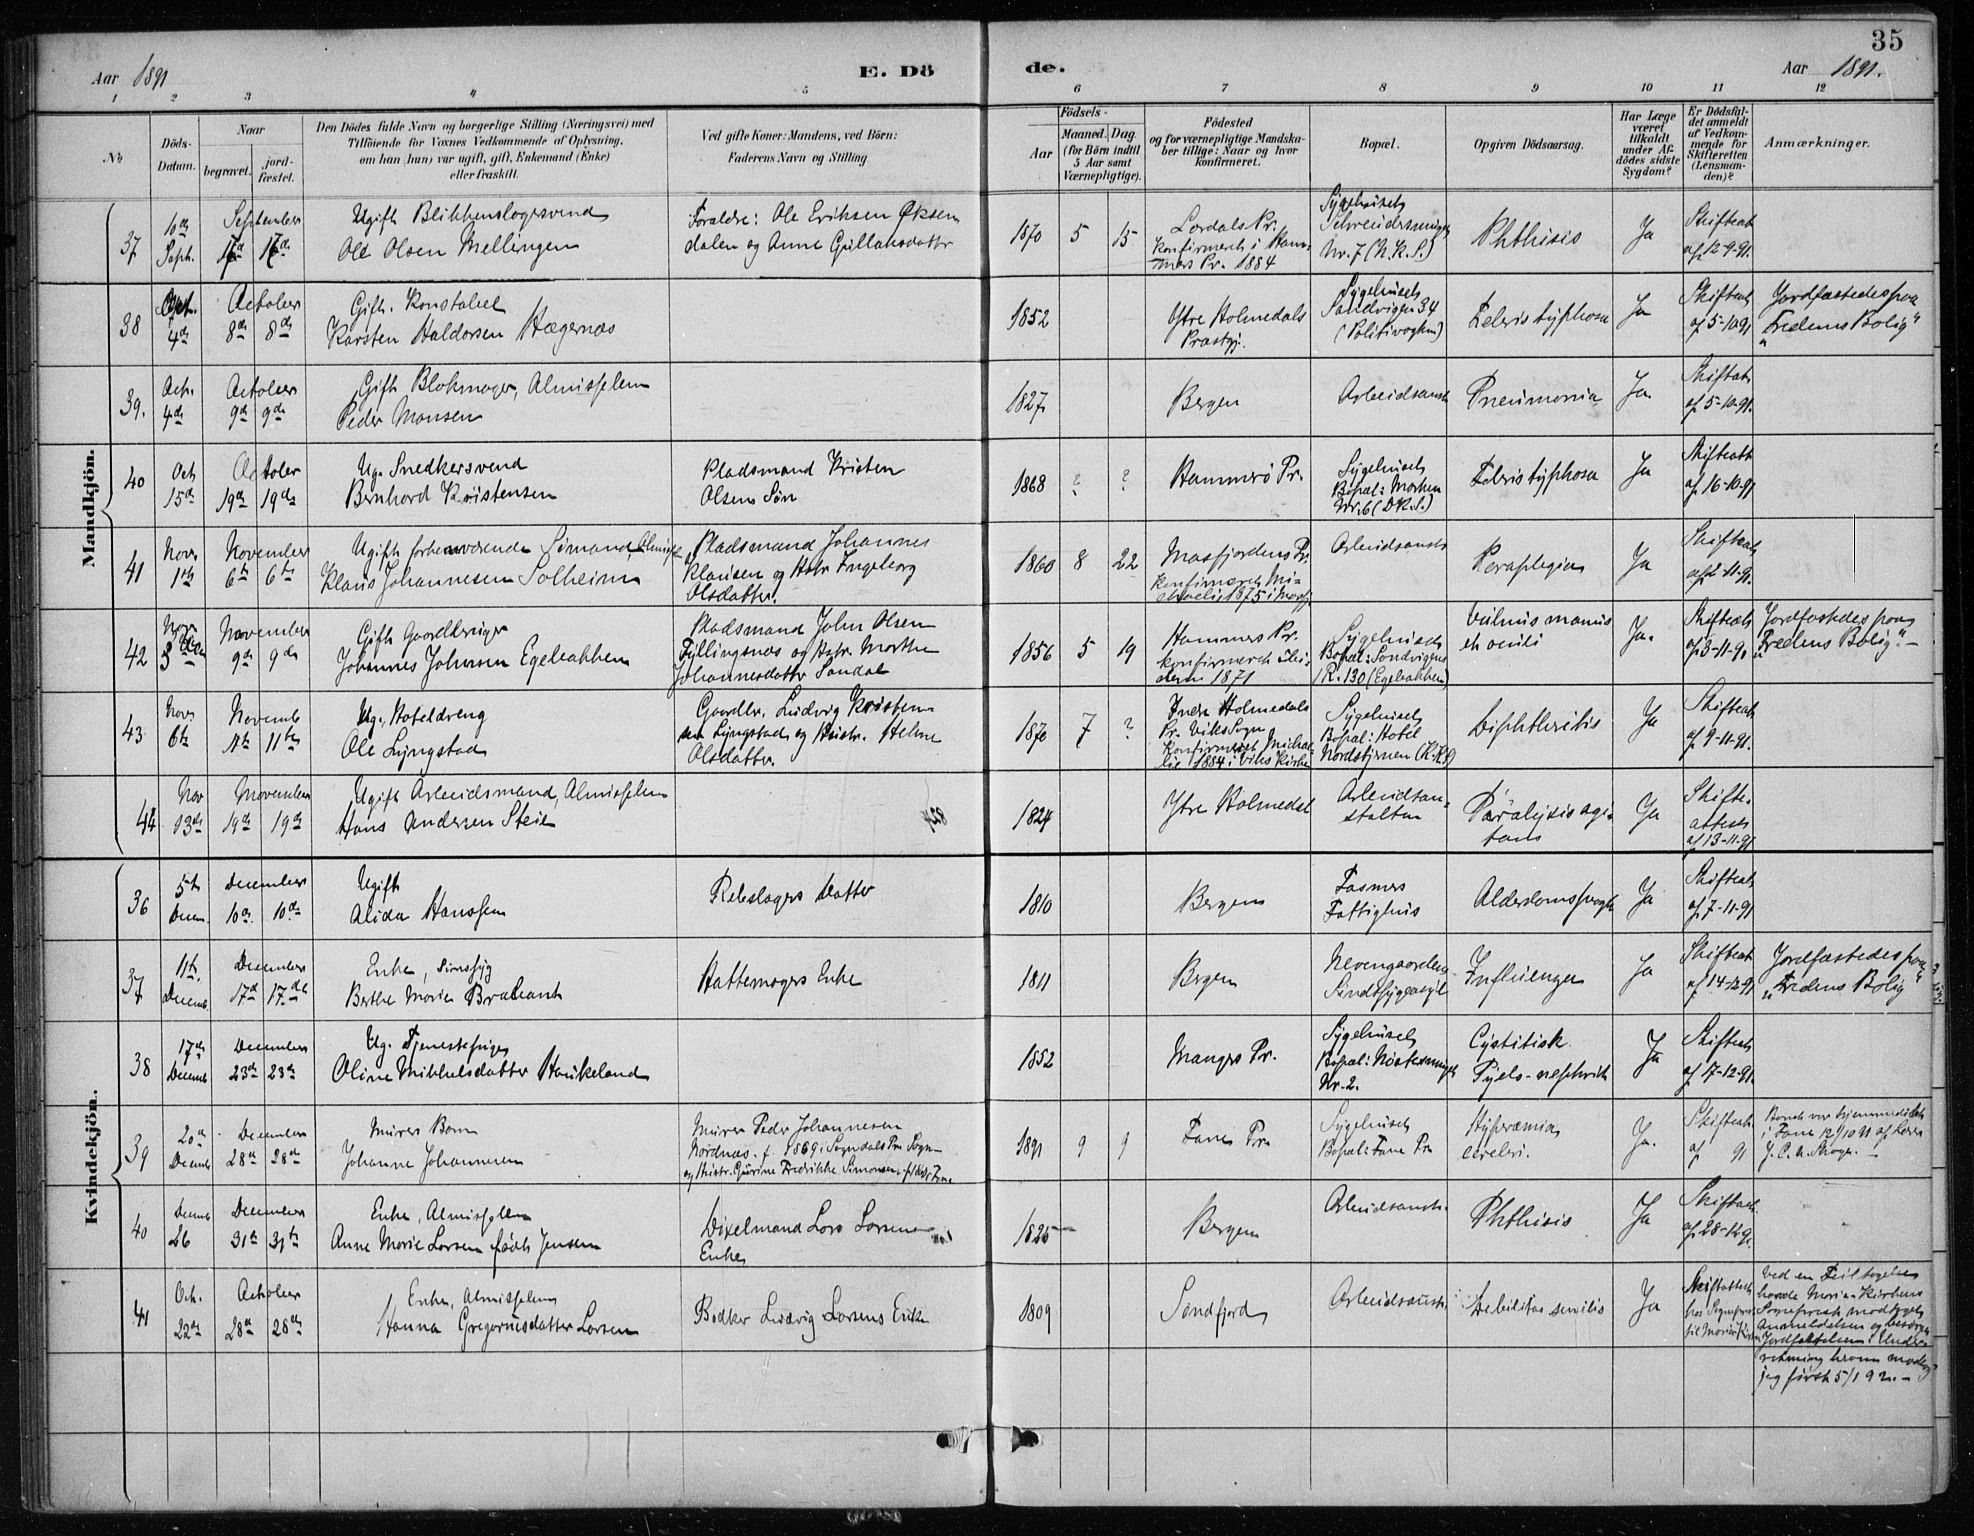 35
Aar 1891
E. Dö
de.
Aar 1891.
1 2 3 4 5 6 7 8 9 10 11 12
No
Döds-Datum.
Naar
begravet.
jord-fæstet.
Den Dödes fulde Navn og borgerlige Stilling (Næringsvei) med
Tilföiende for Voxnes Vedkommende af Oplysning,
om han (hun) var ugift, gift, Enkemand (Enke)
eller fraskilt.
Ved gifte Koner: Mandens, ved Börn:
Faderens Navn og Stilling.
Födsels-
Aar
Maaned. Dag.
(for Börn indtil
5 Aar samt
Værnepligtige).
Födested
og for værnepligtige Mandska-
ber tillige: Naar og hvor
konfirmeret.
Bopæl.
Opgiven Dödsaarsag.
Har Læge
været
tilkaldt
under Af-
dödes sidste
Sygdom?
Er Dödsfal-
det anmeldt
af Vedkom-
mende for
Skifteretten
(Lensman-
den)?
Anmærkninger.
Mandkjön.
37
10de Septb.
September
17d 17de
Ugift Blikkenslagersvend
Ole Olsen Mellingen
Forældre: Ole Eriksen Øksen
dalen og Anne Gullaksdattr
1870 5 15
Konfirmeret i Ham-
mers Pr. 1884
Sygehuset
Nr. 7 (N.K.S.)
Phthisis
Ja
Skifteatt
af 12-9-91.
38
4de
October
8de 8de
Gift. Konstabel
Karsten Haldorsen Hægernæs
1852
Ytre Holmedals
Præstgj.
Sygehuset
Sandvigen 34
(Politivagten)
Febris typhosa
Ja
Skifteatt
af 5-10-91
Jordfæstedes paa
"Fredens Bolig"
39.
Oct. 4de
October
9de 9de
Gift Blokmager, Almisselem
Peder Monsen
1827
Bergen
Arbeidsanst
Pneumonia
Ja.
Skifteatt
af 5-10-91.
40
Oct 15de
October
19de 19de
Ug. Snedkersvend
Bernhard Kristensen
Pladsmand Kristen
Olsens Søn
1868 ? ?
Hammerö Pr.
Sygehuset
Bopæl: Marken
Nr. 6 (DK.S.)
Febris typhosa
Ja
Skifteatt
af 16-10-91
41
Novr 1ste
November
6te 6te
Ugift forhenværende Sömand, Almissel
Klaus Johannesen Solheim
Pladsmand Johannes
Klausen og Hstr Ingeborg
Olsdatter.
1860 8 22
Masfjordens Pr.
Konfirmeret Mi-
chaelis 1875 i Masfj.
Arbeidsanst
Paraplegia
Ja
Skifteatt
af 2-11-91.
42
Nov. 3die
November
9de 9de
Gift Gaardbruger
Johannes Johnsen Egebakken
Pladsmand John Olsen
Fyllingsnæs og Hstr. Marthe
Johannesdatter Sandal
1856 5 19
Hammers Pr.
konfirmeret
1871
Sygehuset
Bopæl: Sandvigens
R. 130 (Egebakken)
Vulnus manus
et oculi
Ja.
Skifteatt
af 3-11-91
Jordfæstedes paa
"Fredens Bolig". -
43
Novr 6te
Novemb
11te 11te
Ug. Hoteldreng
Ole Lyngstad
Gaardbr. Ludvig Kristen-
sen Lyngstad og Hustr. Helene
Olsdatter.
1870 7 ?
Indre Holmedals
Pr. Viks Sogn
Konfirmeret Michae-
lis 1884 i Viks Kirke
Sygehuset
Bopæl: Hotel
Nordstjernen (K.K.S)
Diphtheritis
Ja
Skifteatt
af 9-11-91.
44
Nov 13de
November
19de 19de
Ugift Arbeidsmand, Almisselem
Hans Andersen Steie
1824
Ytre Holmedal
Arbeidsan-
stalten
Paralysis agi-
tans
Ja
Skifte-
attest
af 13-11-91
Kvindekjön.
36
5te Decem.
December
10de 10de
Ugift
Alida Hanssen
Rebslagers Datter
1810
Bergen
Fasmers
Fattighus
Alderdomssvagh
Ja
Skifteatt
af 7-11-91
37
11te Decemb.
December
17d 17.de
Enke, Sindssyg
Berthe Marie Brabant
Hattemagers Enke
1811
Bergen
Nevengaardens
Sindssygeasyl
Influenza
Ja
Skifteatt
af 14-12-91
Jordfæstedes paa
"Fredens Bolig"
38
17de Decemb
December
23de 23de
Ug. Tjenestepige
Oline Mikkelsdatter Haukeland
1852
Mangers Pr.
Sygehuset
Bopæl: Nöstesmuget
Nr. 2.
Cystitisk
Pyelo-nephrit
Ja
Skifteatt
af 17-12-91.
39
20de Decemb
December
28de 28de
Murers Barn
Johanne Johannesen
Murer Peder Johannesen
Nordnæs. f. 1869 i Sogndals Pr. Sogn
og Hustr. Gurine Fredrikke Simonsen
1891 9 9
Fane Pr.
Sygehuset
Bopæl: Fane Pr
Hyperæmia
cerebri.
Ja.
Skifteatt
af 91
Barnet var hjemmedöbt
i Fane 12/10 91 af Lærer
40
Decemb 26
December
31te 31te
Enke, Almisselem
Anne Marie Larsen født Jensen
Dixelmand Lars Larsens
Enke
1825
Bergen
Arbeidsanst.
Phthisis
Ja
Skifteatt.
af 28-12-91.
41
Oct. 22de
October
28de 28de
Enke, Almisselem
Hanna Gregoriusdatter Larsen
Bödker Ludvig Larsens Enke
1809
Söndfjord
Arbeidsanst
Debilitas senilis
Ja
Skifteattest
hos Sognepræs
til Mariæ Kirken
Ved en Feiltagelse
havde Mariæ Kirkens
Sognepræst modtaget
Anmeldelsen og besörget
Jordfæstelsen. Under-
retning herom modtog
jeg först 5/1 92. -